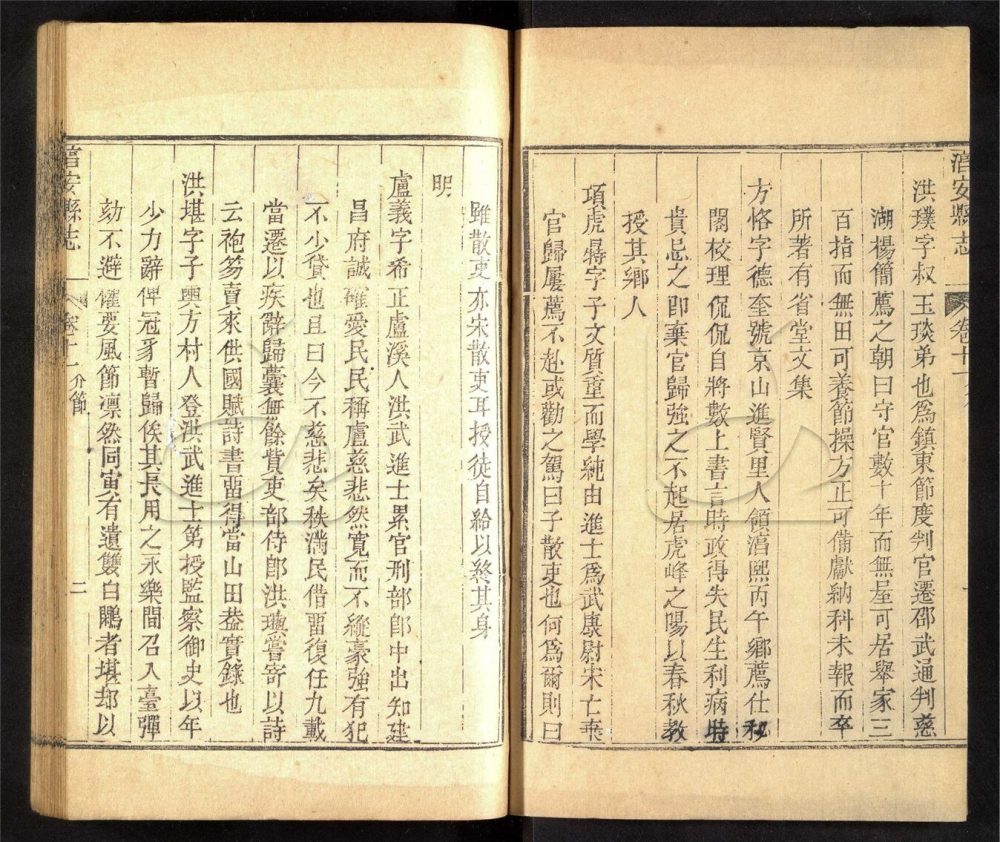 淳安縣志
卷十一
洪璞字叔玉琰弟也爲鎮東節度判官遷邵武通判慈
湖楊簡薦之朝曰守官數十年而無屋可居舉家三
百指而無田可養節操方正可備獻納科未報而卒
所著有省堂文集
方恪字德奎號京山進賢里人領淳熙丙午鄉薦仕秘
閣校理侃侃自將數上書言時政得失民生利病時
貴忌之即棄官歸強之不起居虎峰之陽以春秋教
授其鄉人
項虎彝字子文質重而學純由進士爲武康尉宋亡棄
官歸屢薦不赴或勸之駕曰子散吏也何爲爾則曰
雖散吏亦宋散吏耳授徒自給以終其身
明
盧義字希正盧溪人洪武進士累官刑部郎中出知建
昌府誠確愛民民稱盧慈悲然寬而不縱豪強有犯
不少貸也且曰今不慈悲矣秩滿民借畱復任九載
當遷以疾辭歸囊無餘貲吏部侍郎洪璵嘗寄以詩
云袍笏賣來供國賦詩書畱得當山田葢實錄也
洪堪字子輿方村人登洪武進士第授監察御史以年
少力辭俾冠豸暫歸俟其長用之永樂間召入臺彈
劾不避權要風節凛然同寅有遺雙白鷴者堪却以
淳安縣志
卷十一
介節
二